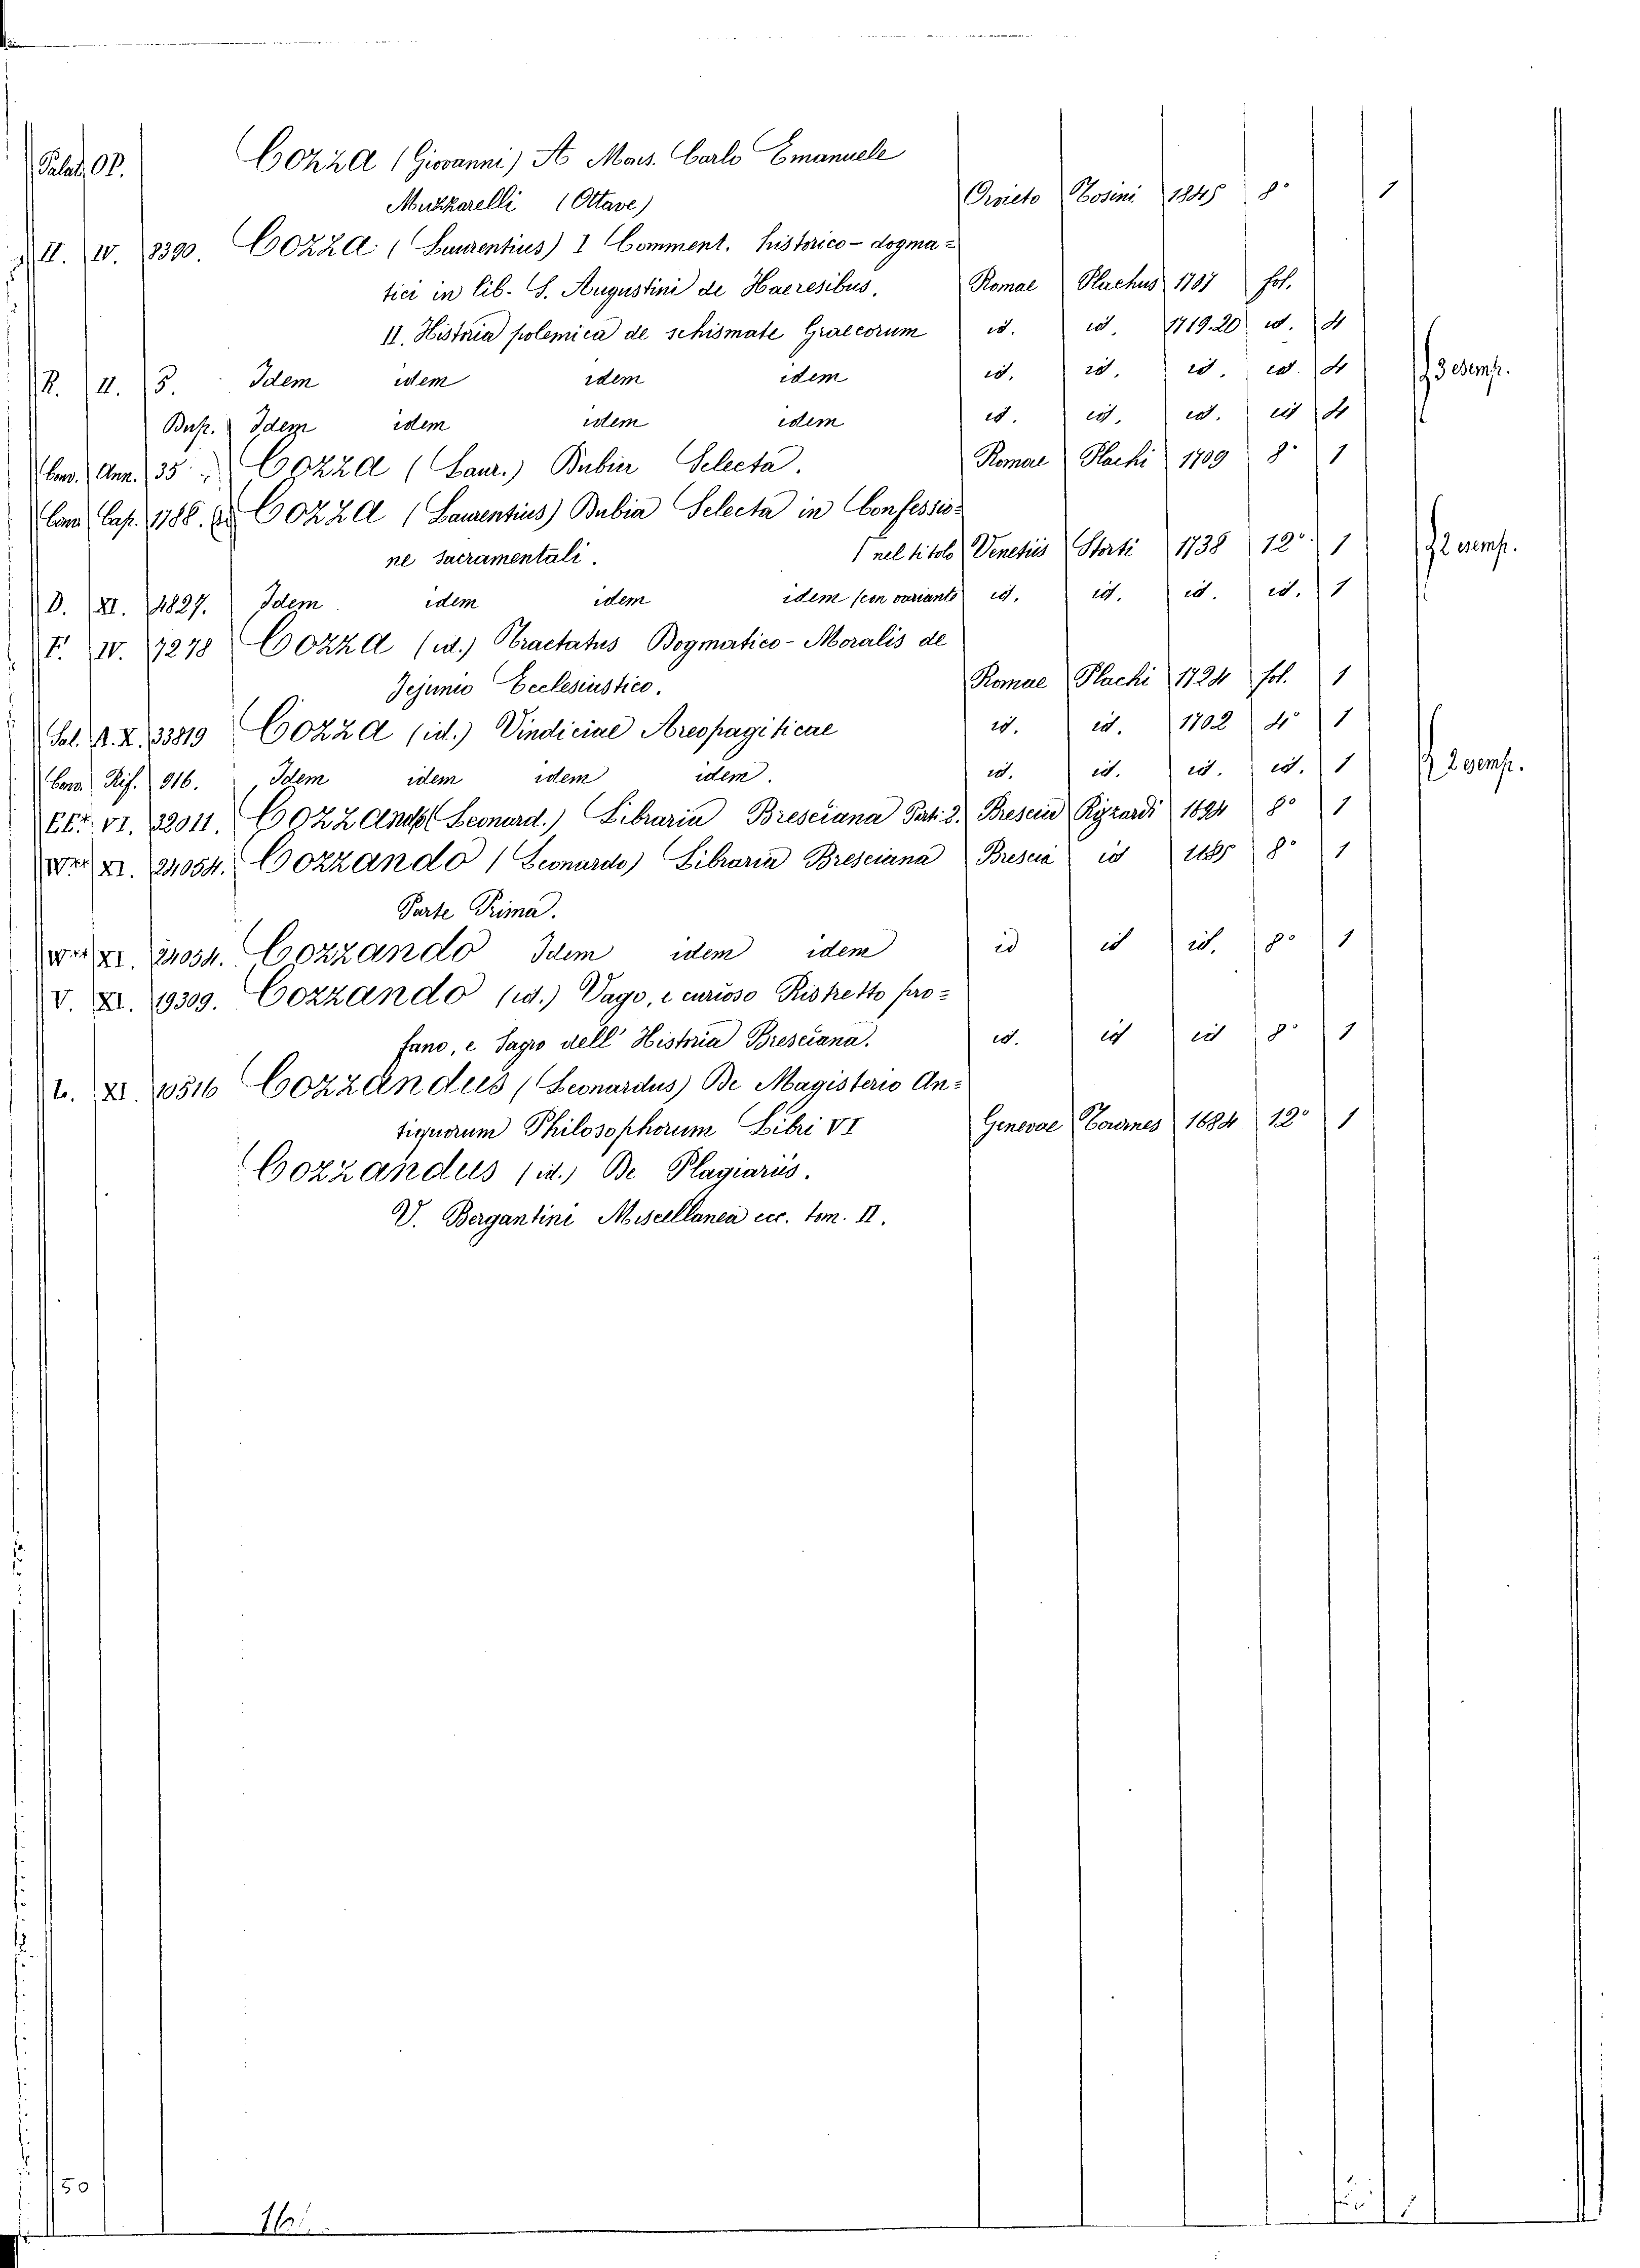 Palat. OP. Cozza (Giovanni) A Mons. Carlo Emanuele
Muzzarelli (Ottave) Orvieto Tosini 1845 8° 1
II. IV. 8390. Cozza (Laurentius) I Comment. historico-dogma=
tici in lib. S. Augustini de Haeresibus. Romae Plachus 1707 fol.
II. Historia polemica de schismate Graecorum id. id. 1719.20 id. 4
R. II. 3. Idem idem idem idem id. id. id. id. 4 3 esemp.
Dup. Idem idem idem idem id. id. id. id 4
Conv. Ann. 35 Cozza (Laur.) Dubia Selecta. Romae Plachi 1709 8° 1
Conv. Cap. 1788. Cozza (Laurentius) Dubia Selecta in Confessio=
ne sacramentali. (nel titolo Venetiis Storti 1738 12° 1 2 esemp.
D. XI. 4827. Idem idem idem idem (con variante id. id. id. id. 1
F. IV. 7278 Cozza (id.) Tractatus Dogmatico-Moralis de
Jejunio Ecclesiastico. Romae Plachi 1724 fol. 1
Sal. A. X. 33819 Cozza (id.) Vindiciae Areopagiticae id. id. 1702 4° 1
Conv. Rif. 916. Idem idem idem idem. id. id. id. id. 1 2 esemp.
VI. 22011. Cozzando (Leonard.) Libraria Bresciana Part. 2. Brescia Rizzardi 1694 8° 1
XI. 24054. Cozzando (Leonardo) Libraria Bresciana Brescia id 1685 8° 1
Parte Prima.
XI. 24054. Cozzando Idem idem idem id id id. 8° 1
V. XI. 19309. Cozzando (id.) Vago, e curioso Ristretto pro=
fano, e Sagro dell' Historia Bresciana. id. id id 8° 1
L. XI. 10516 Cozzandus (Leonardus) De Magisterio An=
tiquorum Philosophorum Libri VI Genevae Tournes 1684 12° 1
Cozzandus (id.) De Plagiariis.
V. Bergantini Miscellanea ecc. tom. II.
50